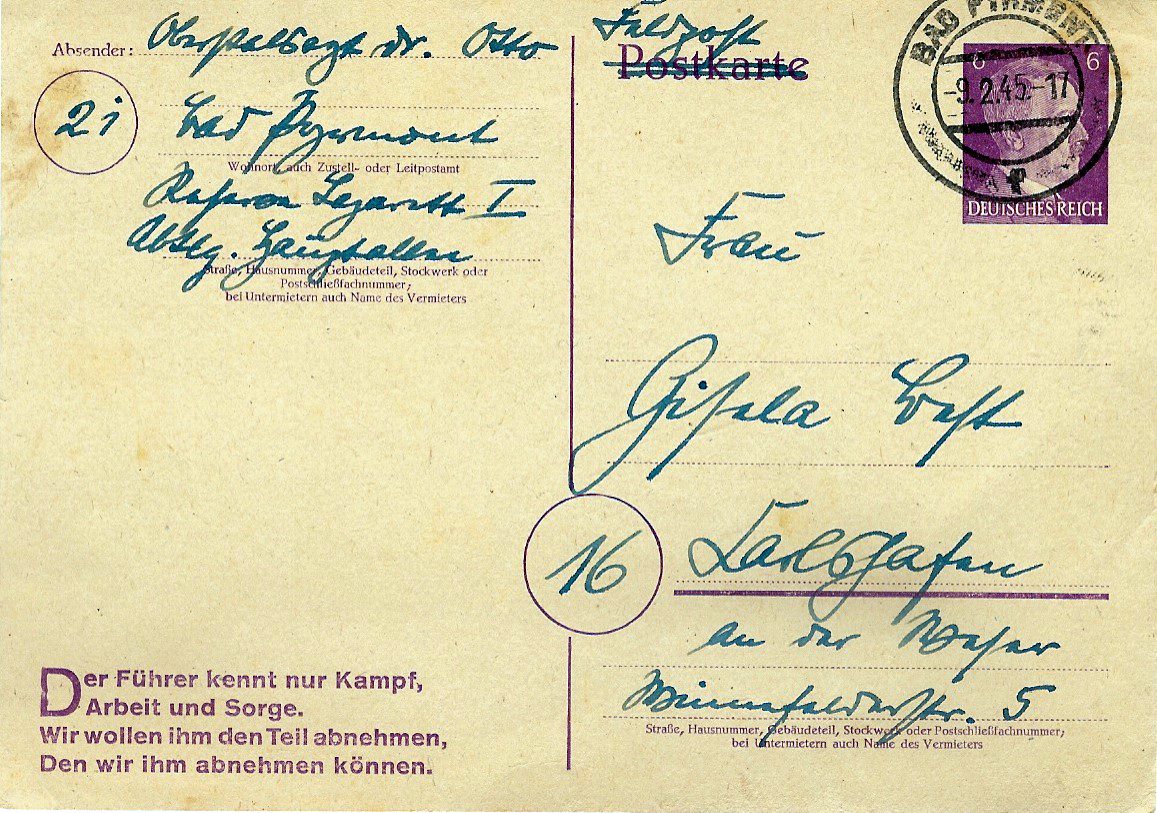 Absender: Oberstabsarzt Dr. Otto
2i
Bad Pyrmont
Wohnort, auch Zustell- oder Leitpostamt
Reserve Lazarett I
Abtlg.
Straße, Hausnummer, Gebäudeteil, Stockwerk oder
Postschließfachnummer;
bei Untermietern auch Name des Vermieters
Feldpost
Postkarte
BAD PYRMONT
-9.2.45.-17
f
6 6
DEUTSCHES REICH
Frau
Gisela
16
Karlshafen
an der Weser
Winnefelderstr. 5
Straße, Hausnummer, Gebäudeteil, Stockwerk oder Postschließfachnummer;
bei Untermietern auch Name des Vermieters
Der Führer kennt nur Kampf,
Arbeit und Sorge.
Wir wollen ihm den Teil abnehmen,
Den wir ihm abnehmen können.